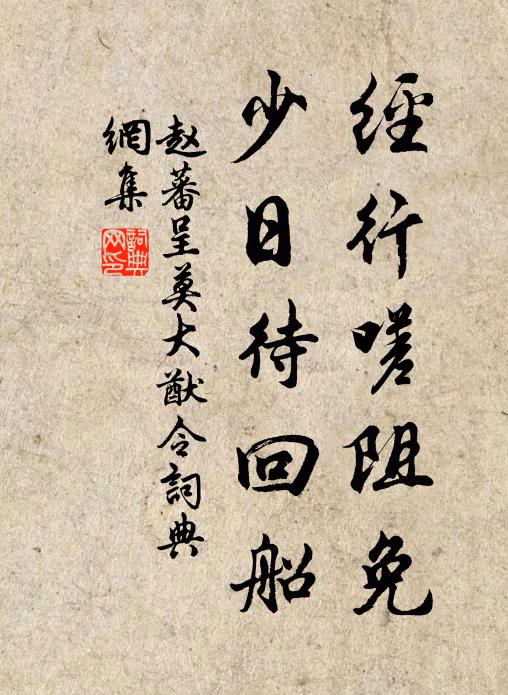 經行嗟阻免
少日待回船
赵蕃呈莫大猷令詞典
網集
詞典
网印